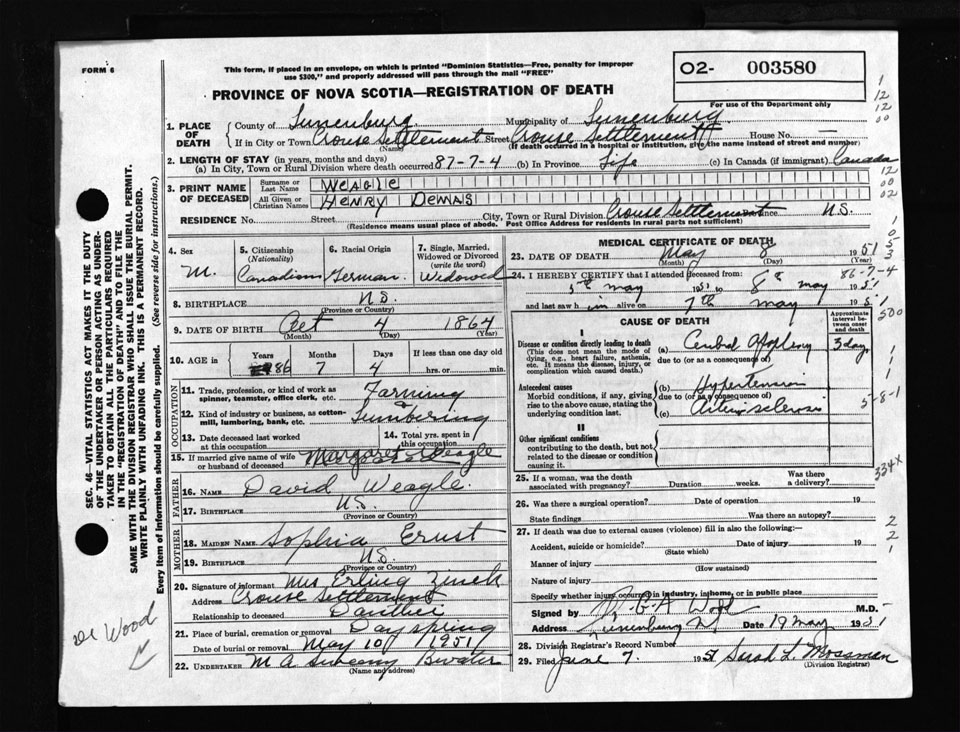 FORM 6
This form, if placed in an envelope, on which is printed "Dominion Statistics—Free, penalty for improper
use $300," and properly addressed will pass through the mail "FREE"
O2- 003580
For use of the Department only
PROVINCE OF NOVA SCOTIA—REGISTRATION OF DEATH
1. PLACE OF DEATH
County of Lunenburg Municipality of Lunenburg
If in City or Town Crouse Settlement Street Crouse Settlement House No. —
(Name) (If death occurred in a hospital or institution, give the name instead of street and number)
2. LENGTH OF STAY (in years, months and days)
(a) In City, Town or Rural Division where death occurred 87-7-4 (b) In Province Life (c) In Canada (if immigrant) Canada
3. PRINT NAME OF DECEASED
Surname or Last Name WEAGLE
All Given or Christian Names HENRY DEMAS
RESIDENCE No. Street City, Town or Rural Division Crouse Settlement N.S.
(Residence means usual place of abode. Post Office Address for residents in rural parts not sufficient)
4. Sex M.
5. Citizenship (Nationality) Canadian
6. Racial Origin German.
7. Single, Married, Widowed or Divorced (write the word) Widowed
8. BIRTHPLACE N.S.
(Province or Country)
9. DATE OF BIRTH Oct 4 1864
(Month) (Day) (Year)
10. AGE in Years 86 Months 7 Days 4 If less than one day old hrs. or min.
OCCUPATION
11. Trade, profession, or kind of work as spinner, teamster, office clerk, etc. Farming
12. Kind of industry or business, as cotton-mill, lumbering, bank, etc. Lumbering
13. Date deceased last worked at this occupation
14. Total yrs. spent in this occupation
15. If married give name of wife or husband of deceased Margaret Weagle
FATHER
16. NAME David Weagle.
17. BIRTHPLACE N.S.
(Province or Country)
MOTHER
18. MAIDEN NAME Sophia Ernst
19. BIRTHPLACE N.S.
(Province or Country)
20. Signature of informant Mrs Erling Zinck
Address Crouse Settlement
Relationship to deceased Daughter
21. Place of burial, cremation or removal Dayspring
Date of burial or removal May 10 1951
22. UNDERTAKER M A Sweeny Bwater
(Name and address)
MEDICAL CERTIFICATE OF DEATH
23. DATE OF DEATH May 8 1951
(Month) (Day) (Year)
24. I HEREBY CERTIFY that I attended deceased from: 86-7-4
5th may 1951 to 8th may 1951
and last saw him alive on 7th may 1951
CAUSE OF DEATH
Approximate interval between onset and death
I
Disease or condition directly leading to death
(This does not mean the mode of dying, e.g., heart failure, asthenia, etc. It means the disease, injury, or complication which caused death.)
(a) Cerebral Apoplexy 3 days
due to (or as a consequence of)
Antecedent causes
Morbid conditions, if any, giving rise to the above cause, stating the underlying condition last.
(b) Hypertension
due to (or as a consequence of)
(c) Arteriosclerosis
5-8-1
II
Other significant conditions
contributing to the death, but not related to the disease or condition causing it.
25. If a woman, was the death associated with pregnancy? Duration weeks. Was there a delivery?
334x
26. Was there a surgical operation? Date of operation 19
State findings Was there an autopsy?
27. If death was due to external causes (violence) fill in also the following:—
Accident, suicide or homicide? Date of injury 19
(State which)
Manner of injury
(How sustained)
Nature of injury
Specify whether injury occurred in industry, in home, or in public place
Signed by W G A Wood M.D.
Address Lunenburg NS Date 19 May 1951
28. Division Registrar's Record Number
29. Filed June 7 1951 Sarah L. Mossman
(Division Registrar)
SEC. 46—VITAL STATISTICS ACT MAKES IT THE DUTY
OF THE UNDERTAKER OR PERSON ACTING AS UNDER-
TAKER TO OBTAIN ALL THE PARTICULARS REQUIRED
IN THE "REGISTRATION OF DEATH" AND TO FILE THE
SAME WITH THE DIVISION REGISTRAR WHO SHALL ISSUE THE BURIAL PERMIT.
WRITE PLAINLY WITH UNFADING INK. THIS IS A PERMANENT RECORD.
Every item of information should be carefully supplied. (See reverse side for instructions.)
Dr Wood
1
12
12
00
12
00
02
1
0
5
3
500
1
1
1
1
2
2
1